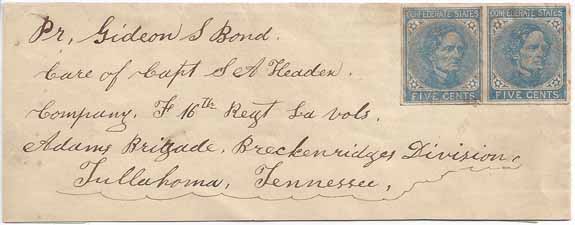 Pr, Gideon S Bond.
Care of Capt S A Headen.
Company. F 16th Regt La vols.
Adams Brigade. Breckenridges Division,
Tullahoma, Tennessee,
CONFEDERATE STATES
FIVE CENTS
CONFEDERATE STATES
FIVE CENTS